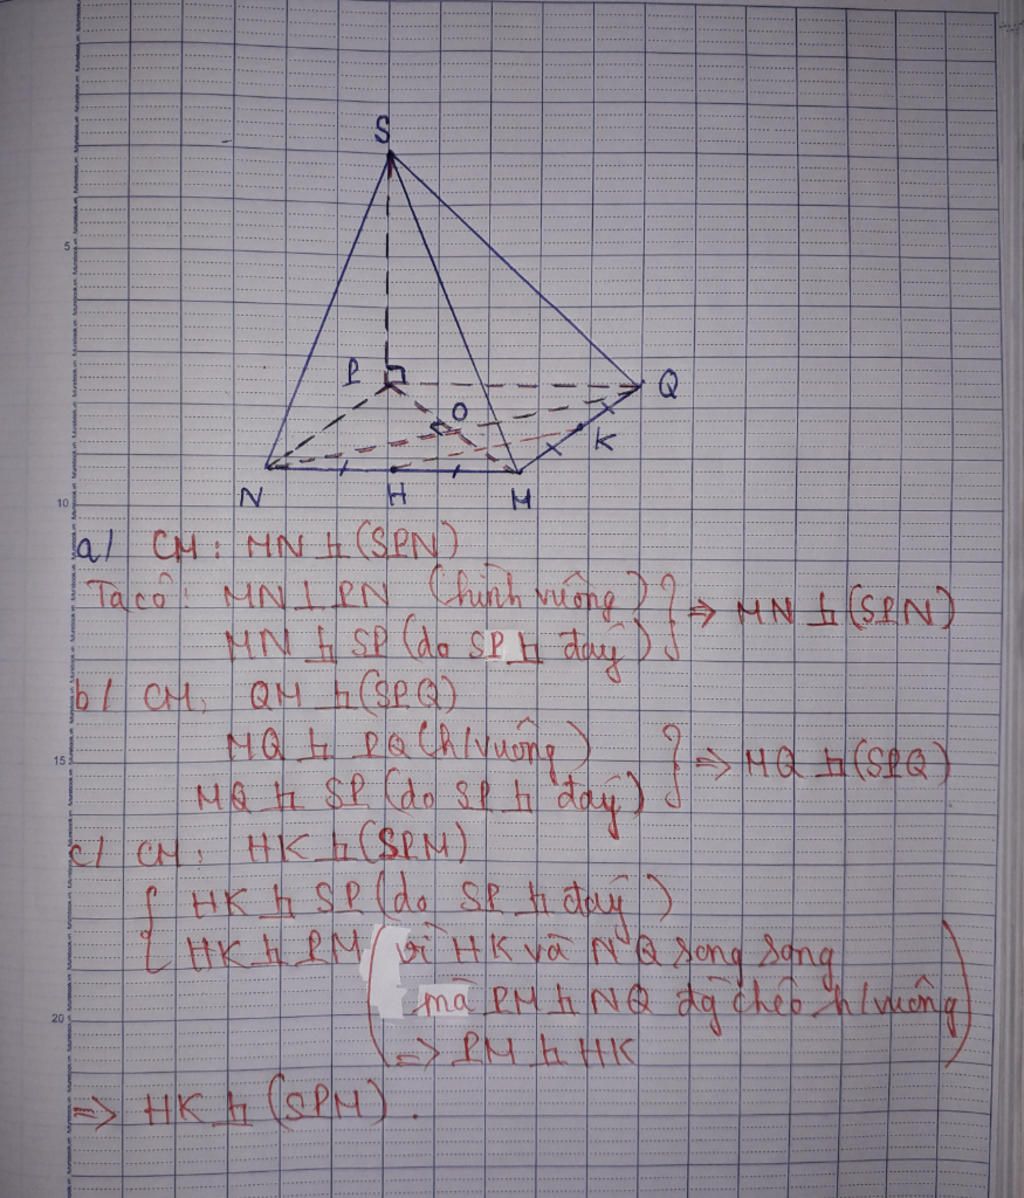 S
5
P
O
Q
K
N
H
M
10
a/ CM: MN ⊥ (SPN)
Ta có: MN ⊥ PN (hình vuông) } => MN ⊥ (SPN)
MN ⊥ SP (do SP ⊥ đáy)
b/ CM: QM ⊥ (SPQ)
MQ ⊥ PQ (h/vuông)
15
} => MQ ⊥ (SPQ)
MQ ⊥ SP (do SP ⊥ đáy)
c/ CM: HK ⊥ (SPM)
{ HK ⊥ SP (do SP ⊥ đáy)
HK ⊥ PM (vì HK và NQ song song
mà PM ⊥ NQ đg chéo h/vuông
20
=> PM ⊥ HK)
=> HK ⊥ (SPM).